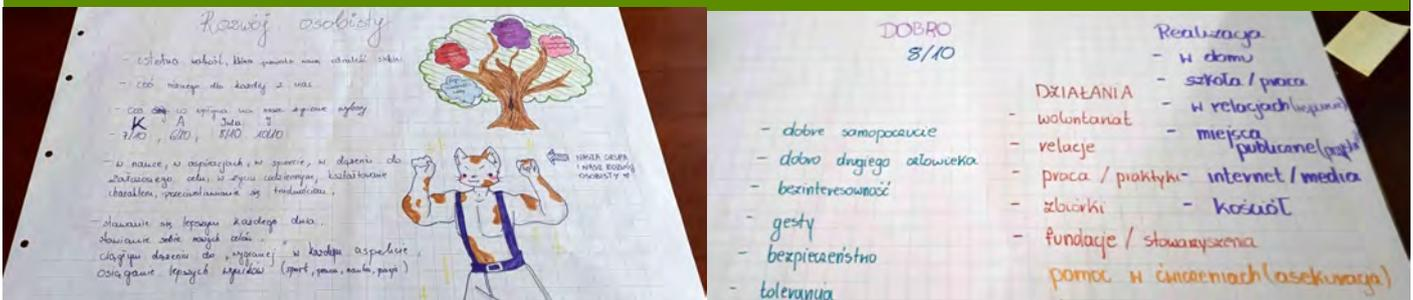 Rozwój osobisty
- istotna wartość, która pozwala nam odnaleźć siebie
- coś ważnego dla każdej z nas
- coś co wpływa na nasze życiowe wybory
K A Jula J
- 7/10, 6/10, 8/10 10/10
- w nauce, w aspiracjach, w sporcie, w dążeniu do
założonego celu, w życiu codziennym, kształtowanie
charakteru, przeciwstawianie się trudnościom.
- stawanie się lepszym każdego dnia.
stawianie sobie nowych celów.
ciągłym dążeniu do "wygranej" w każdym aspekcie,
osiąganie lepszych wyników (sport, praca, nauka, pasje)
NASZA GRUPA
I NASZ ROZWÓJ
OSOBISTY
DOBRO
8/10
- dobre samopoczucie
- dobro drugiego człowieka
- bezinteresowność
- gesty
- bezpieczeństwo
- tolerancja
DZIAŁANIA
- wolontariat
- relacje
- praca / praktyki
- zbiórki
- fundacje / stowarzyszenia
pomoc w ćwiczeniach (asekuracja)
Realizacja
- w domu
- szkoła / praca
- w relacjach
- miejsca
publiczne
- internet / media
- kościół